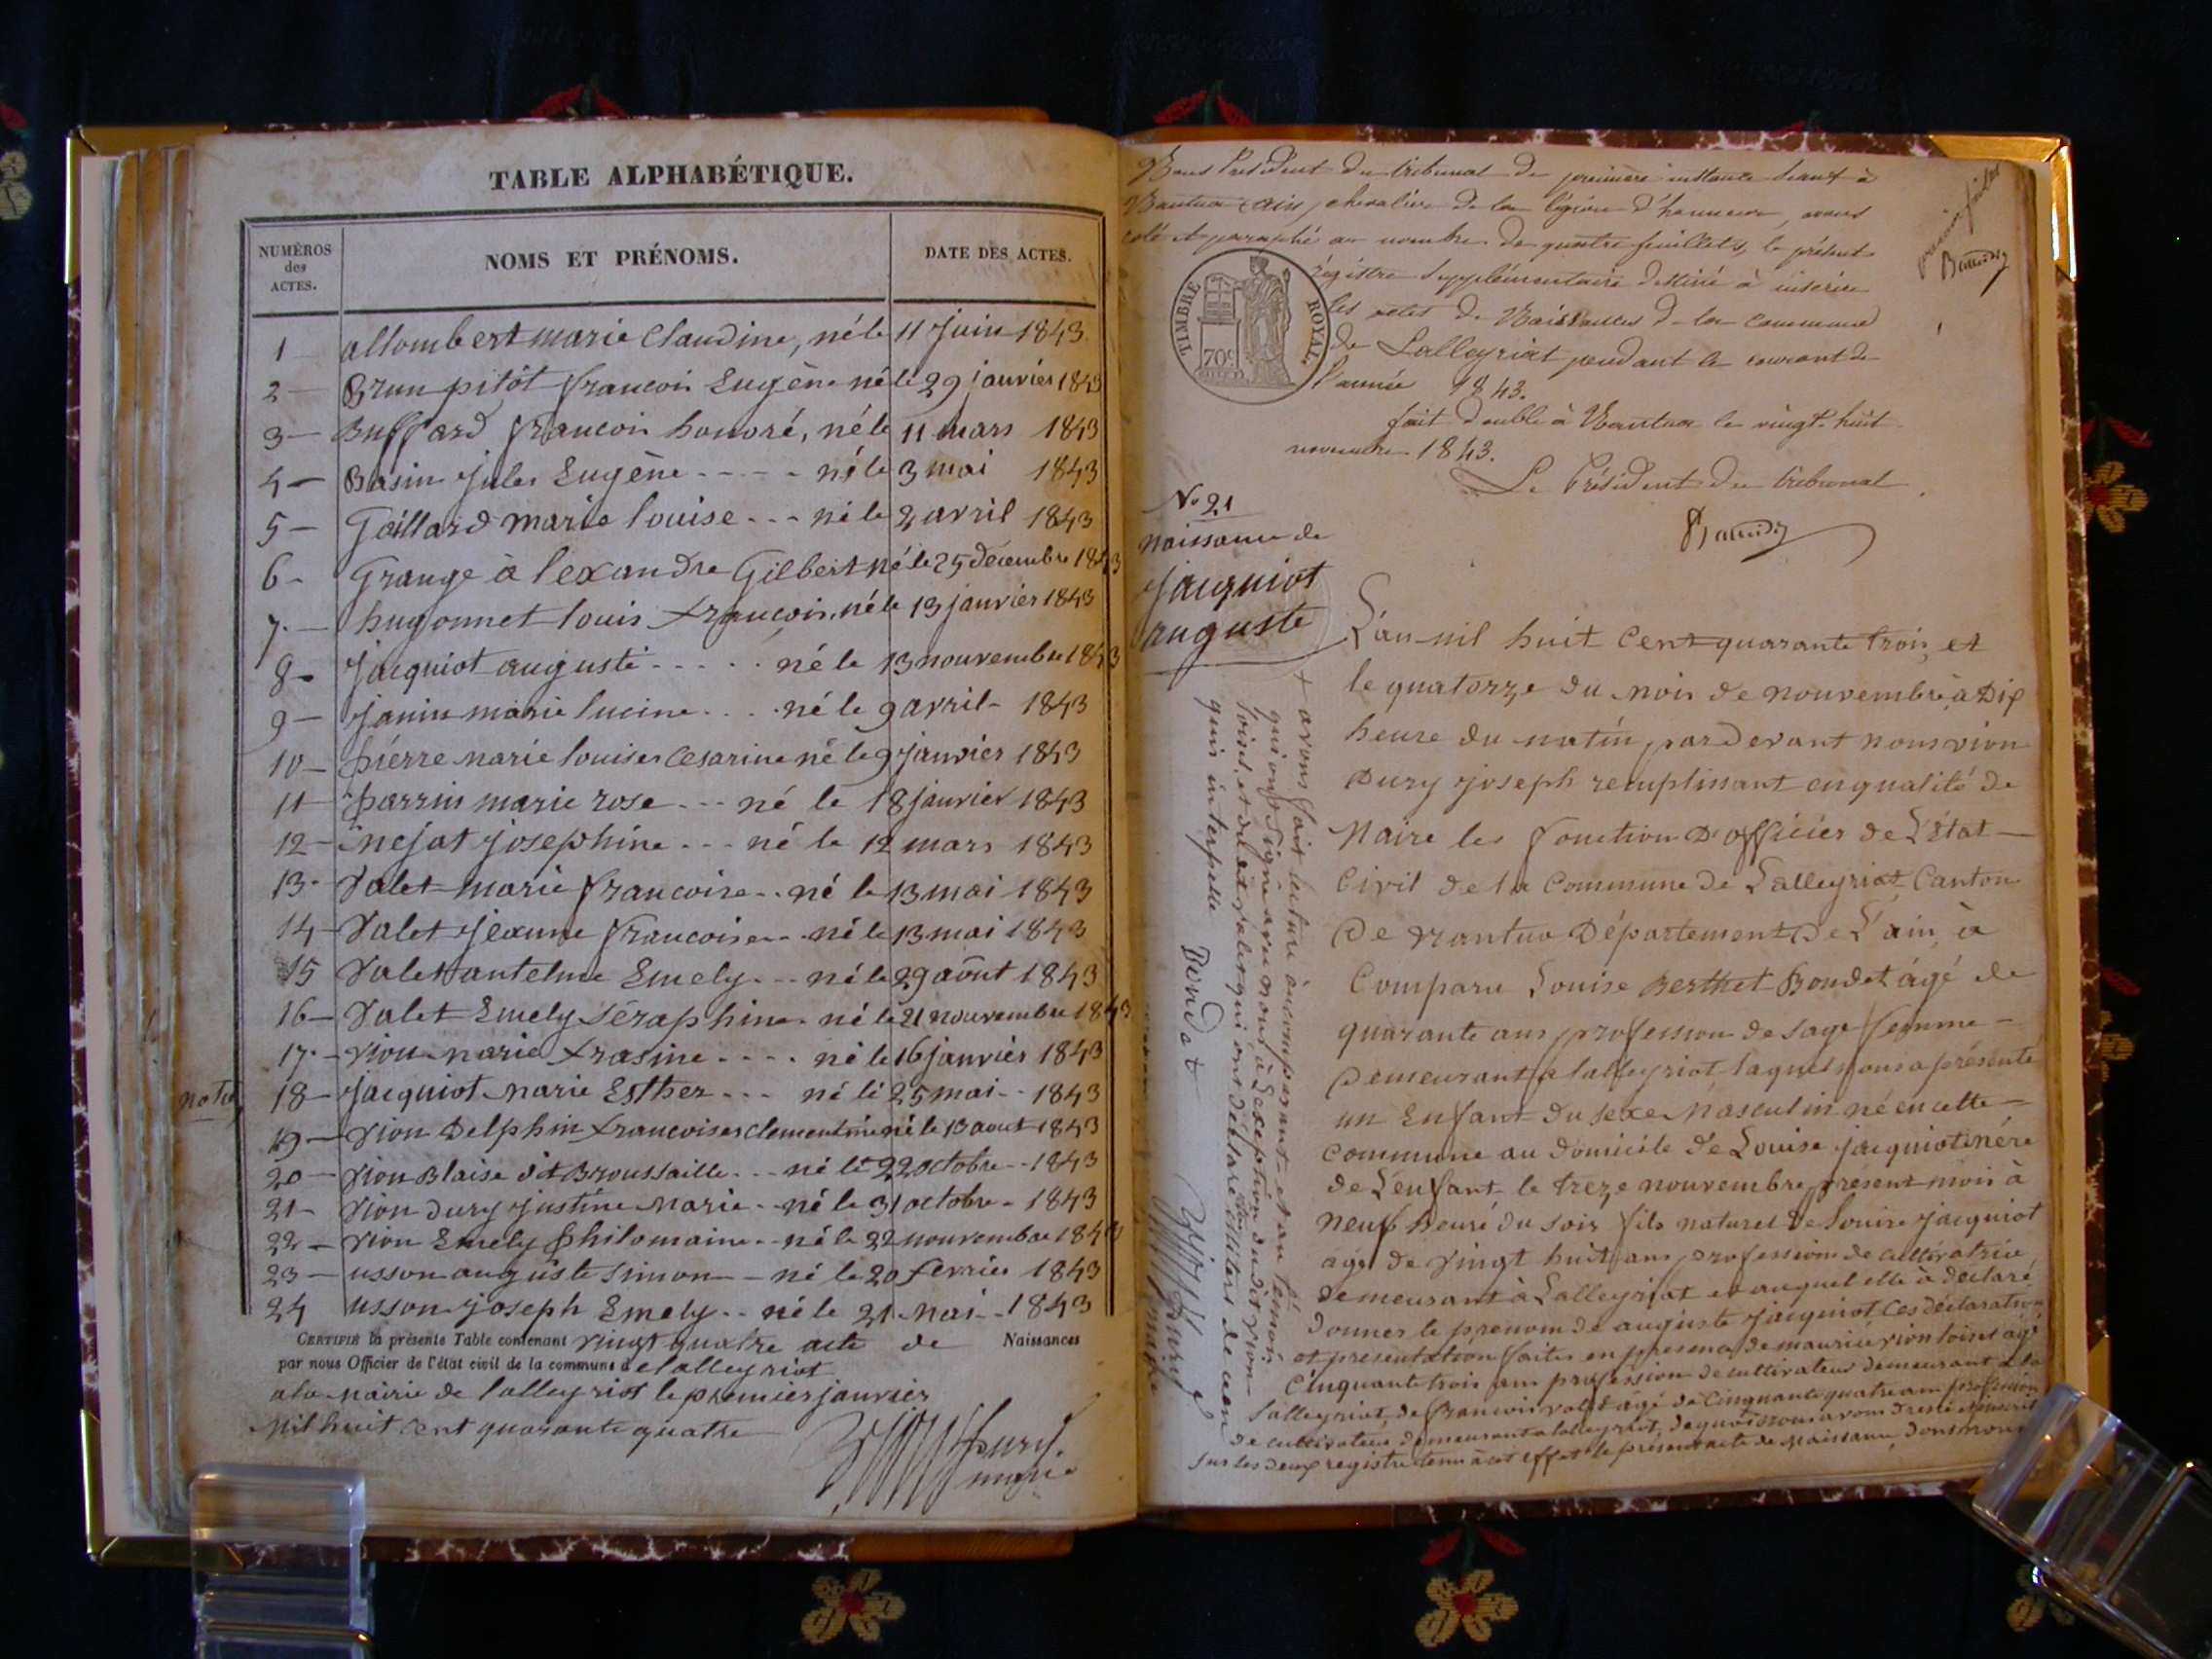 TABLE ALPHABÉTIQUE.
NUMÉROS des ACTES.
NOMS ET PRÉNOMS.
DATE DES ACTES.
1 — allombert marie Claudine, né le 11 Juin 1843
2 — Brun pitôt francois Eugène né le 29 janvier 1843
3 — Buffard francois honoré, né le 11 mars 1843
4 — Basin Jules Eugène - - - - né le 3 mai 1843
5 — Gaillard marie louise - - - né le 2 avril 1843
6 - Grange à lexandre Gilbert né le 25 décembre 1843
7. — hugonnet louis francois, né le 13 janvier 1843
8 - Jacquiot auguste - - - - - né le 13 nouvembre 1843
9 — Janin marie lucine - - - né le 9 avril - 1843
10 — pierre marie louise Cesarine né le 9 janvier 1843
11 — perrin marie rose - - - né le 18 janvier 1843
12 — mejat josephine - - - né le 12 mars 1843
13 - Valet marie francoise - - né le 13 mai 1843
14 — Valet Jeanne francoise - - né le 13 mai 1843
15 Valet antelme Emely - - - né le 29 août 1843
16 — Valet Emely Séraphine - né le 21 nouvembre 1843
17 - — vion marie frasine - - - - né le 16 janvier 1843
notes 18 — Jacquiot Marie Esther - - - né le 25 mai - - 1843
19 — Vion Delphin francoises clementine né le 13 aout 1843
20 — Vion Blaise dit Broussaille - - - né le 22 octobre - - 1843
21 - Vion Dury Justine Marie - - né le 31 octobre - 1843
22 — Vion Emely philomaine - - né le 22 nouvembre 1843
23 — usson auguste Simon — né le 20 fevrier 1843
24 usson joseph Emely - - né le 21 Mai - - 1843
CERTIFIÉ la présente Table contenant vingt quatre acte de Naissances
par nous Officier de l'état civil de la commune de lalleyriat
a la Mairie de lalleyriat le premier janvier
Mil huit cent quarante quatre
Dury
maire
Nous Président du tribunal de première instance séant à
Nantua (Ain), chevalier de la légion d'honneur, avons
coté et paraphé au nombre de quatre feuillets, le présent
régistre supplémentaire destiné à inscrire
les actes de Naissances de la commune
de Lalleyriat pendant le courant de
l'année 1843.
fait double à Nantua le vingt-huit
novembre 1843.
Le Président du tribunal
premier feuillet
TIMBRE ROYAL.
70c
No 21
naissance de
Jacquiot
auguste
L'an mil huit Cent quarante trois, et
le quatorze du mois de nouvembre à Dix
heure du matin, pardevant nous vion
Dury joseph remplissant en qualité de
Maire les fonction D'officier de L'état —
Civil de la Commune de Lalleyriat Canton
De Nantua Département De L'ain, à
Comparu Louise Berthet Bondet âgé de
quarante ans profession de sage femme —
Demeurant a lalleyriat laquel nous a présenté
un Enfant du sexe Masculin né en cette —
Commune au domicile de Louise jacquiot mére
de L'enfant le treze nouvembre présent mois à
neuf heure du soir fils naturel de Louise jacquiot
agé de vingt huit ans, profession de cultivatrice
demeurant à Lalleyriat et auquel elle à declaré
donner le prenom de auguste Jacquiot Ces déclaration
et présentation faites en presence de maurice vion loiset agé
Cinquante trois ans profession de cultivateur demeurant a la
lalleyriat, de francois valet âgé de Cinquante quatre ans profession
de cultivateur demeurant a lalleyriat, de quoi nous avons dressé et inscrit
sur les deux registre tenu à cet effet le présent acte de Naissance, dont nous
+ avons fait lecture au comparant et au témoin
qui ont Signé avec nous à L'exception dudit vion
loiset, et dudit valet qui ont déclaré être illitéré de ceux
quis interpelle
Bondet
Dury
maire